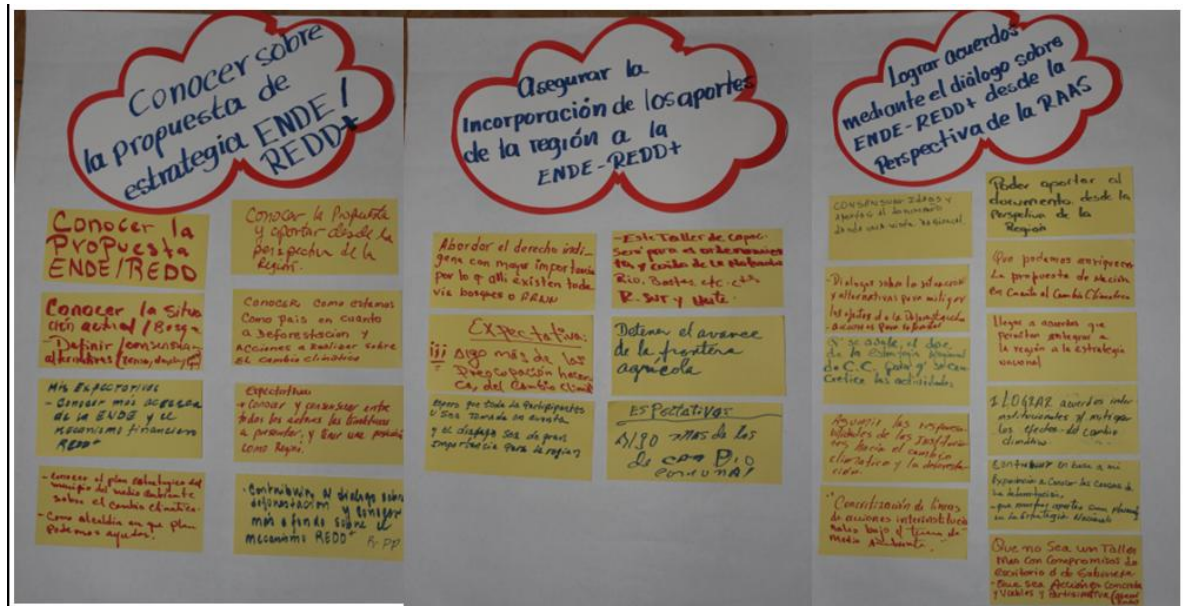 Conocer sobre
la propuesta de
estrategia ENDE /
REDD+
Conocer la
Propuesta
ENDE/REDD
Conocer la situa
ción actual / Bosque
- Definir / consensuar
alternativas
Mis Expectativas
- Conocer más acerca
de la ENDE y el
mecanismo financiero
REDD+
- Conocer el plan estrategico del
municipio del medio ambiente
sobre el cambio climatico.
- Como alcaldia en que plan
podemos ayudar.
Conocer la Propuesta
y aportar desde la
perspectiva de la
Región.
Conocer como estamos
como país en cuanto
a Deforestacion y
Acciones a Realizar sobre
el cambio climático
Expectativas
Conocer y consensuar entre
todos los actores las
a presentar, y tener una
como Región.
- Contribuir al dialogo sobre
deforestación y conocer
más a fondo sobre el
mecanismo REDD+
R-PP
Asegurar la
Incorporación de los aportes
de la región a la
ENDE-REDD+
Abordar el derecho indi
gena con mayor importancia
por lo q alli existen toda
via bosques
Expectativa:
Algo más de las
Preocupación
del Cambio Climat
Espero que toda la Participantes
Sea Tomada en cuenta
y el dialogo Sea de gran
importancia para la región
- Este Taller de capac.
Será para el
y cuido de la
Rio, Bosques, etc.
R. Sur y Norte.
Detener el avance
de la frontera
agrícola
Espectativas
Algo mas de los
de
Lograr acuerdos
mediante el diálogo sobre
ENDE-REDD+ desde la
Perspectiva de la RAAS
Consensuar Ideas y
aportes al documento
desde una visión Regional
- Dialogar sobre la situación
y alternativas para mitigar
los efectos de la Deforestación
- acciones para
el doc
de la Estrategia Regional
de C.C.
las actividades
Asumir las responsa-
bilidades de las Institucio
nes hacia el cambio
climatico y la deforesta-
ción.
"Concretización de lineas
de acciones interinstitucio
nales bajo el tema de
Medio Ambiente."
Poder aportar al
documento desde la
Perspectiva de la
Región
Que podamos enriquecer
La propuesta de Nación
en Cuanto al Cambio Climatico
Llegar a acuerdos que
permitan integrar a
la región a la estrategia
nacional
LOGRAR acuerdos inter
institucionales p/ mitigar
los efectos del cambio
climático.
Contribuir en base a mi
Experiencia a Conocer las causas de
la deforestación.
- que nuestros aportes sean
en la Estrategia Nacional
Que no Sea un Taller
Mas con Compromisos de
escritorio o de Gabinete
- Que sea Acciones Concretas
y Viables y Participativa